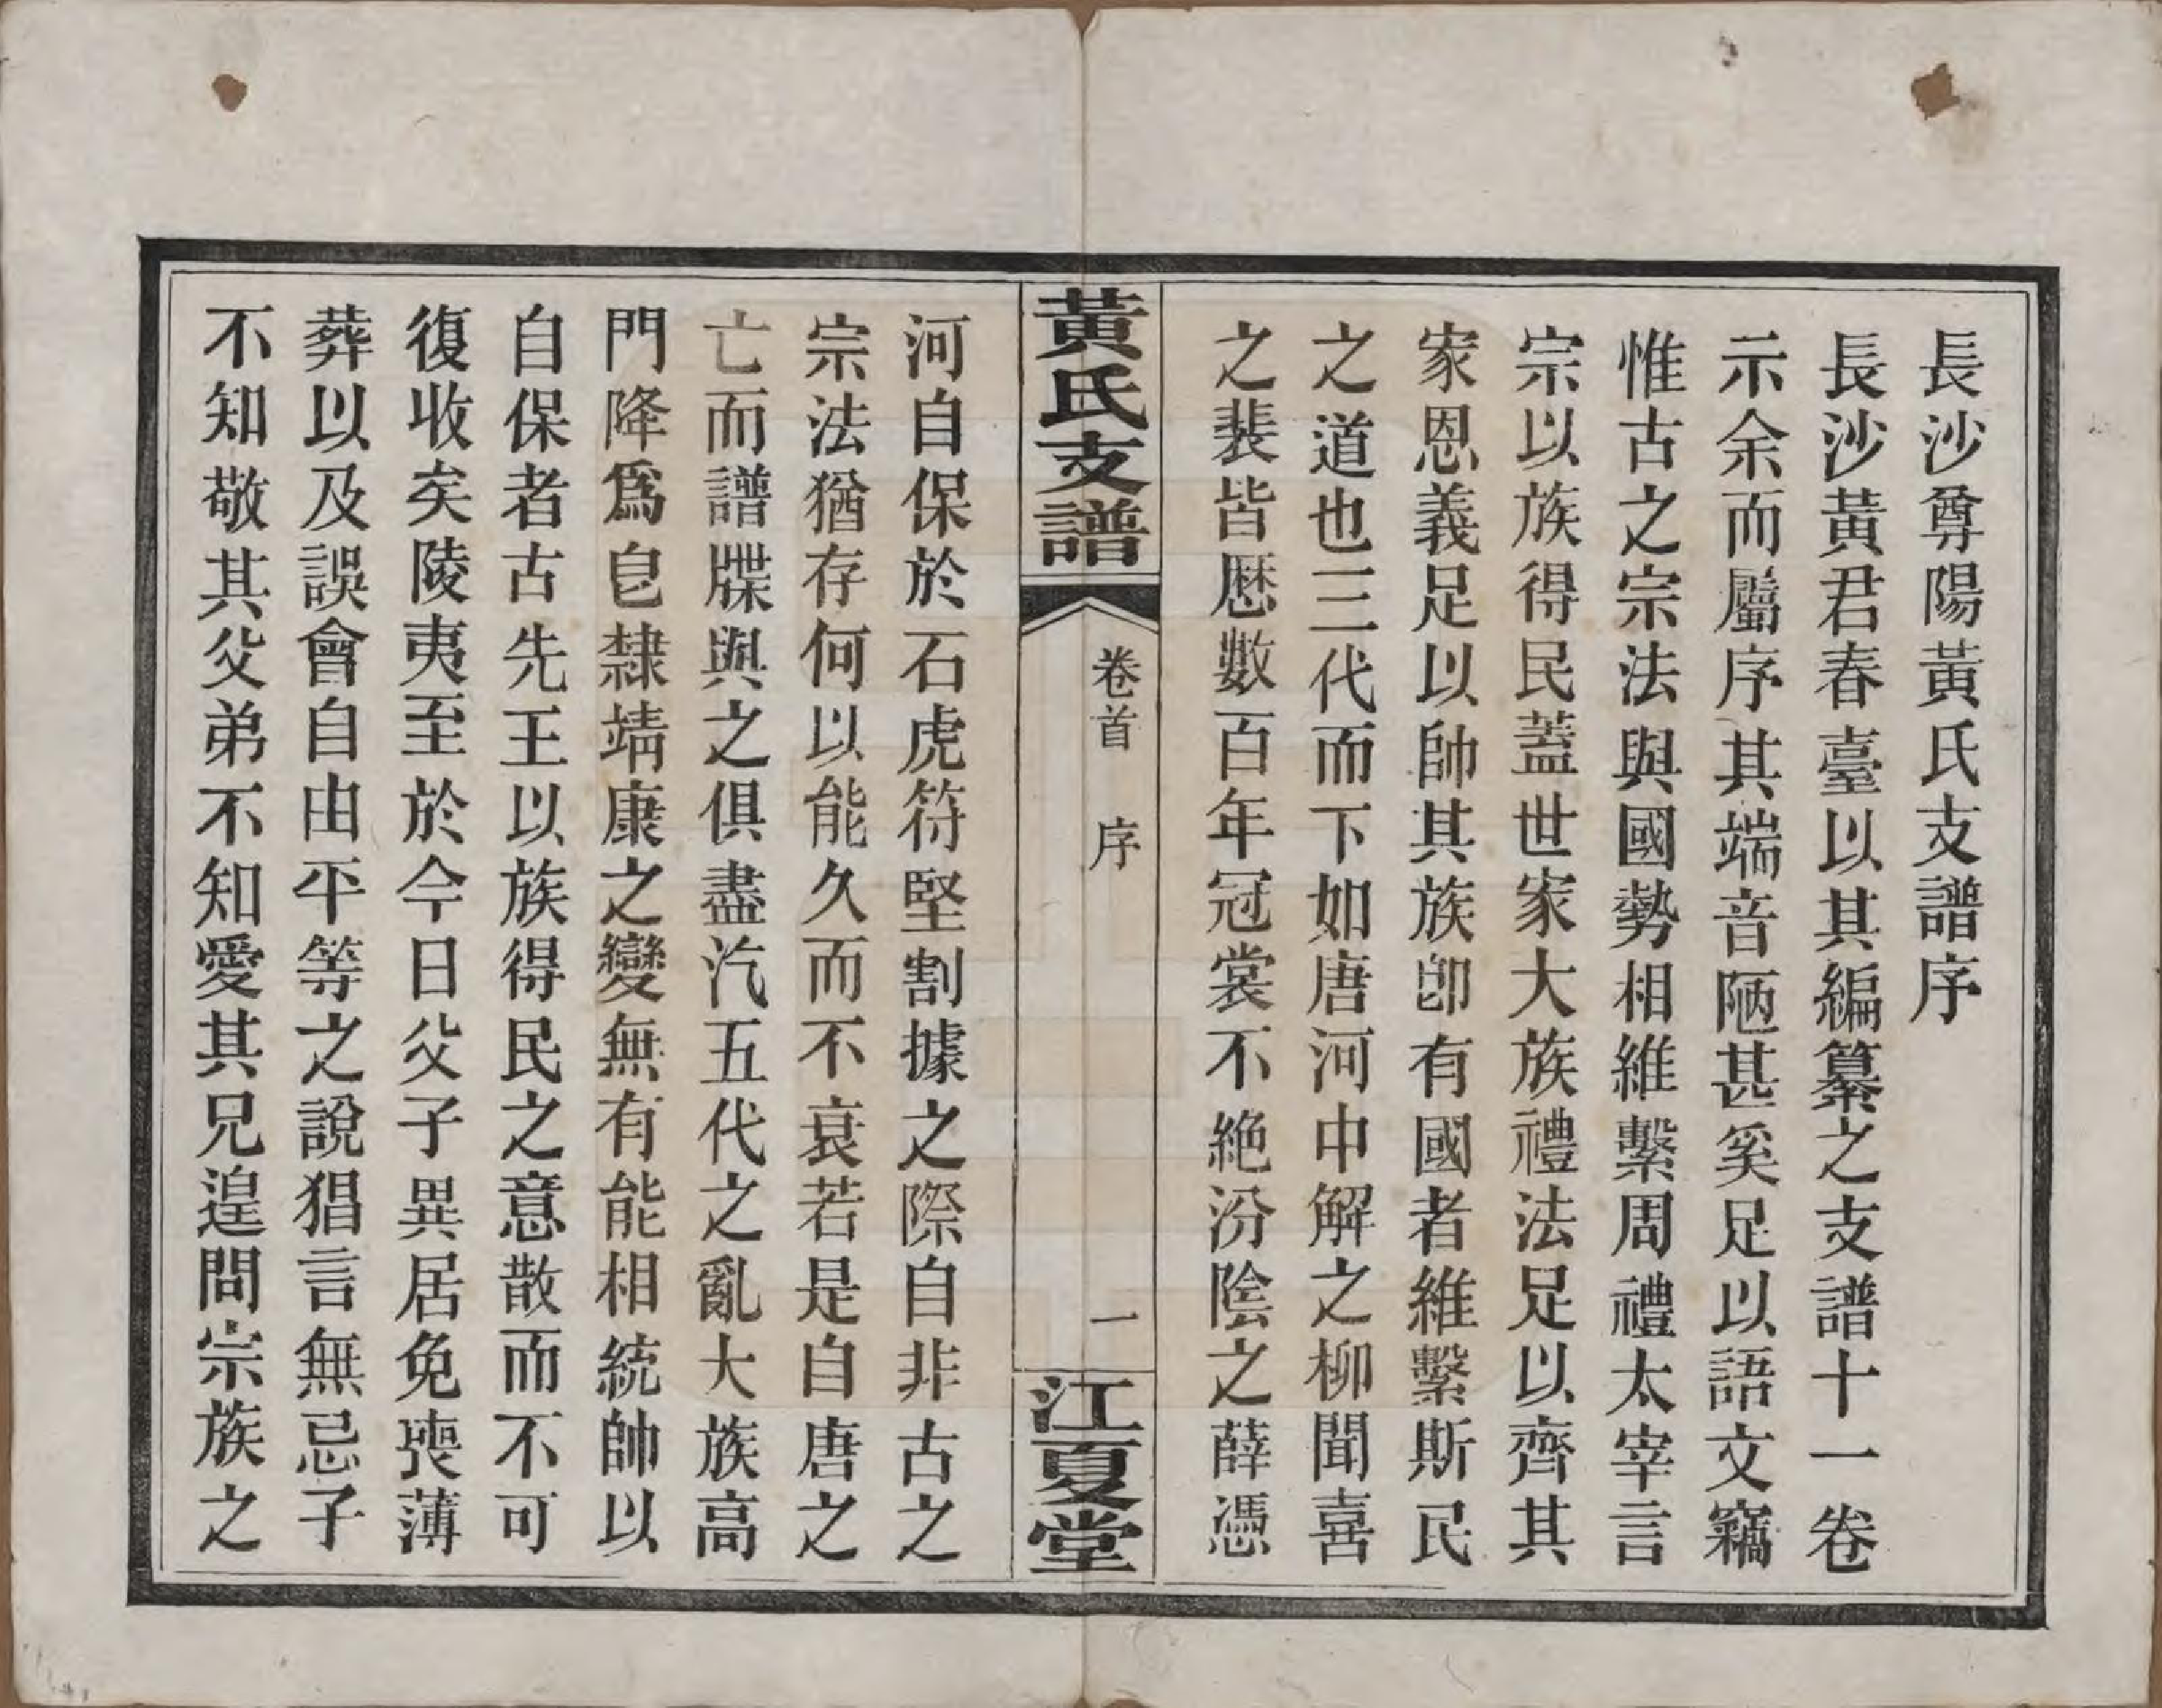 長沙尊陽黃氏支譜序
長沙黃君春臺以其編纂之支譜十一卷
示余而屬序其端音陋甚奚足以語文竊
惟古之宗法與國勢相維繫周禮太宰言
宗以族得民蓋世家大族禮法足以齊其
家恩義足以帥其族卽有國者維繫斯民
之道也三代而下如唐河中解之柳聞喜
之裴皆歷數百年冠裳不絶汾陰之薛憑
黃氏支譜
卷首 序
一
江夏堂
河自保於石虎苻堅割據之際自非古之
宗法猶存何以能久而不衰若是自唐之
亡而譜牒與之俱盡汔五代之亂大族高
門降爲皂隸靖康之變無有能相統帥以
自保者古先王以族得民之意散而不可
復收矣陵夷至於今日父子異居免喪薄
葬以及誤會自由平等之說猖言無忌子
不知敬其父弟不知愛其兄遑問宗族之